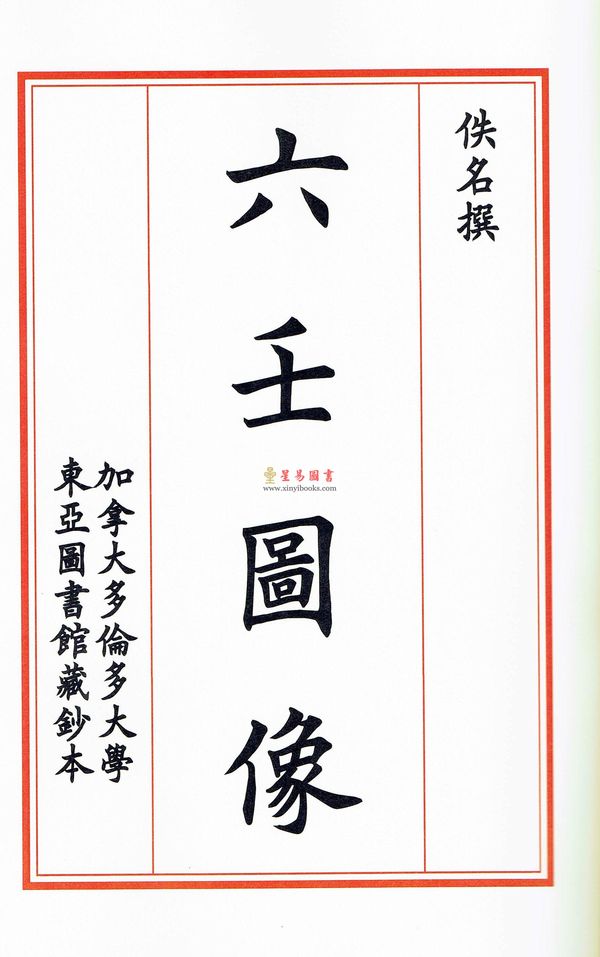 佚名撰
六壬圖像
加拿大多倫多大學
東亞圖書館藏鈔本
星易圖書
www.xinyibooks.com